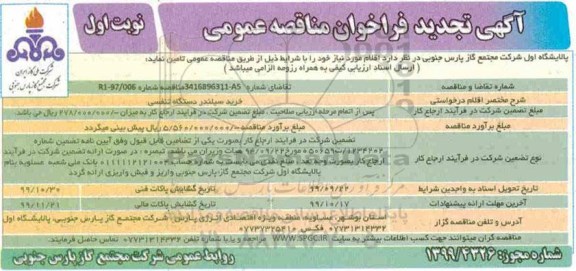 آگهی تجدید فراخوان مناقصه عمومی
نوبت اول
شرکت ملی گاز ایران
شرکت مجتمع گاز پارس جنوبی
پالایشگاه اول شرکت مجتمع گاز پارس جنوبی در نظر دارد اقلام مورد نیاز خود را با شرایط ذیل از طریق مناقصه عمومی تامین نماید:
( ارسال اسناد ارزیابی کیفی به همراه رزومه الزامی میباشد )
شماره تقاضا و مناقصه
تقاضای شماره 3416896311-A5 مناقصه شماره R1-97/006
شرح مختصر اقلام درخواستی
خرید سیلندر دستگاه تنفسی
مبلغ تضمین شرکت در فرآیند ارجاع کار
پس از اتمام مرحله ارزیابی صلاحیت . مبلغ تضمین شرکت در فرآیند ارجاع کار به میزان ۲۷۸/۰۰۰/۰۰۰/- ریال می باشد.
مبلغ برآورد مناقصه
مبلغ برآورد مناقصه ۵/۵۶۰/۰۰۰/۰۰۰/- ریال پیش بینی میگردد
نوع تضمین شرکت در فرآیند ارجاع کار
تضمین شرکت در فرآیند ارجاع کار بصورت یکی از تضامین قابل قبول وفق آیین نامه تضمین شماره
هیات وزیران می باشد.
به نام شرکت مجتمع گاز پارس جنوبی واریز و فیش واریزی ارائه گردد
تاریخ تحویل اسناد به واجدین شرایط
تاریخ گشایش پاکات فنی
۹۹/۱۰/۳۰
آخرین مهلت ارائه پیشنهادات
۹۹/۱۰/۱۷
تاریخ گشایش پاکات مالی
۹۹/۱۱/۲۱
آدرس و تلفن مناقصه گزار
استان بوشهر، عسلویه، منطقه ویژه اقتصادی انرژی پارس، شرکت مجتمع گاز پارس جنوبی، پالایشگاه اول
۰۷۷۳۱۳۱۲۲۳۳
مناقصه گران میتوانند جهت کسب اطلاعات بیشتر به سایت WWW.SPGC.IR مراجعه و یا با شماره تلفن تماس حاصل فرمایند.
شماره مجوز: ۱۳۹۹/۲۳۲۶
روابط عمومی شرکت مجتمع گاز پارس جنوبی